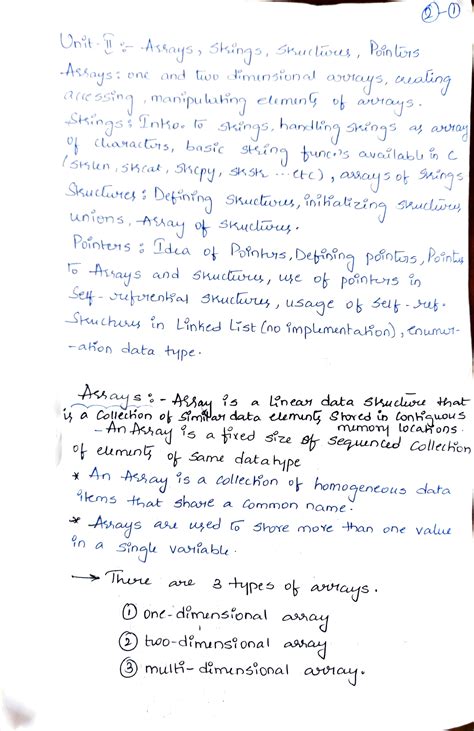 ②-①
Unit-II :- Arrays, Strings, Structures, Pointers
Arrays: one and two dimensional arrays, creating
accessing, manipulating elements of arrays.
Strings: Intro. to strings, handling strings as array
of characters, basic string func.s available in C
(strlen, strcat, strcpy, strstr ... etc), arrays of strings
Structures: Defining structures, initializing structures,
unions, Array of structures.
Pointers: Idea of Pointers, Defining pointers, Pointers
to Arrays and structures, use of pointers in
Self-referential structures, usage of self-ref.
Structures in Linked List (no implementation), enumer-
-ation data type.
Arrays :- Array is a linear data structure that
is a collection of similar data elements stored in contiguous
memory locations.
- An Array is a fixed size of sequenced collection
of elements of same datatype
* An Array is a collection of homogeneous data
items that share a common name.
* Arrays are used to store more than one value
in a single variable.
→ There are 3 types of arrays.
① one-dimensional array
② two-dimensional array
③ multi-dimensional array.